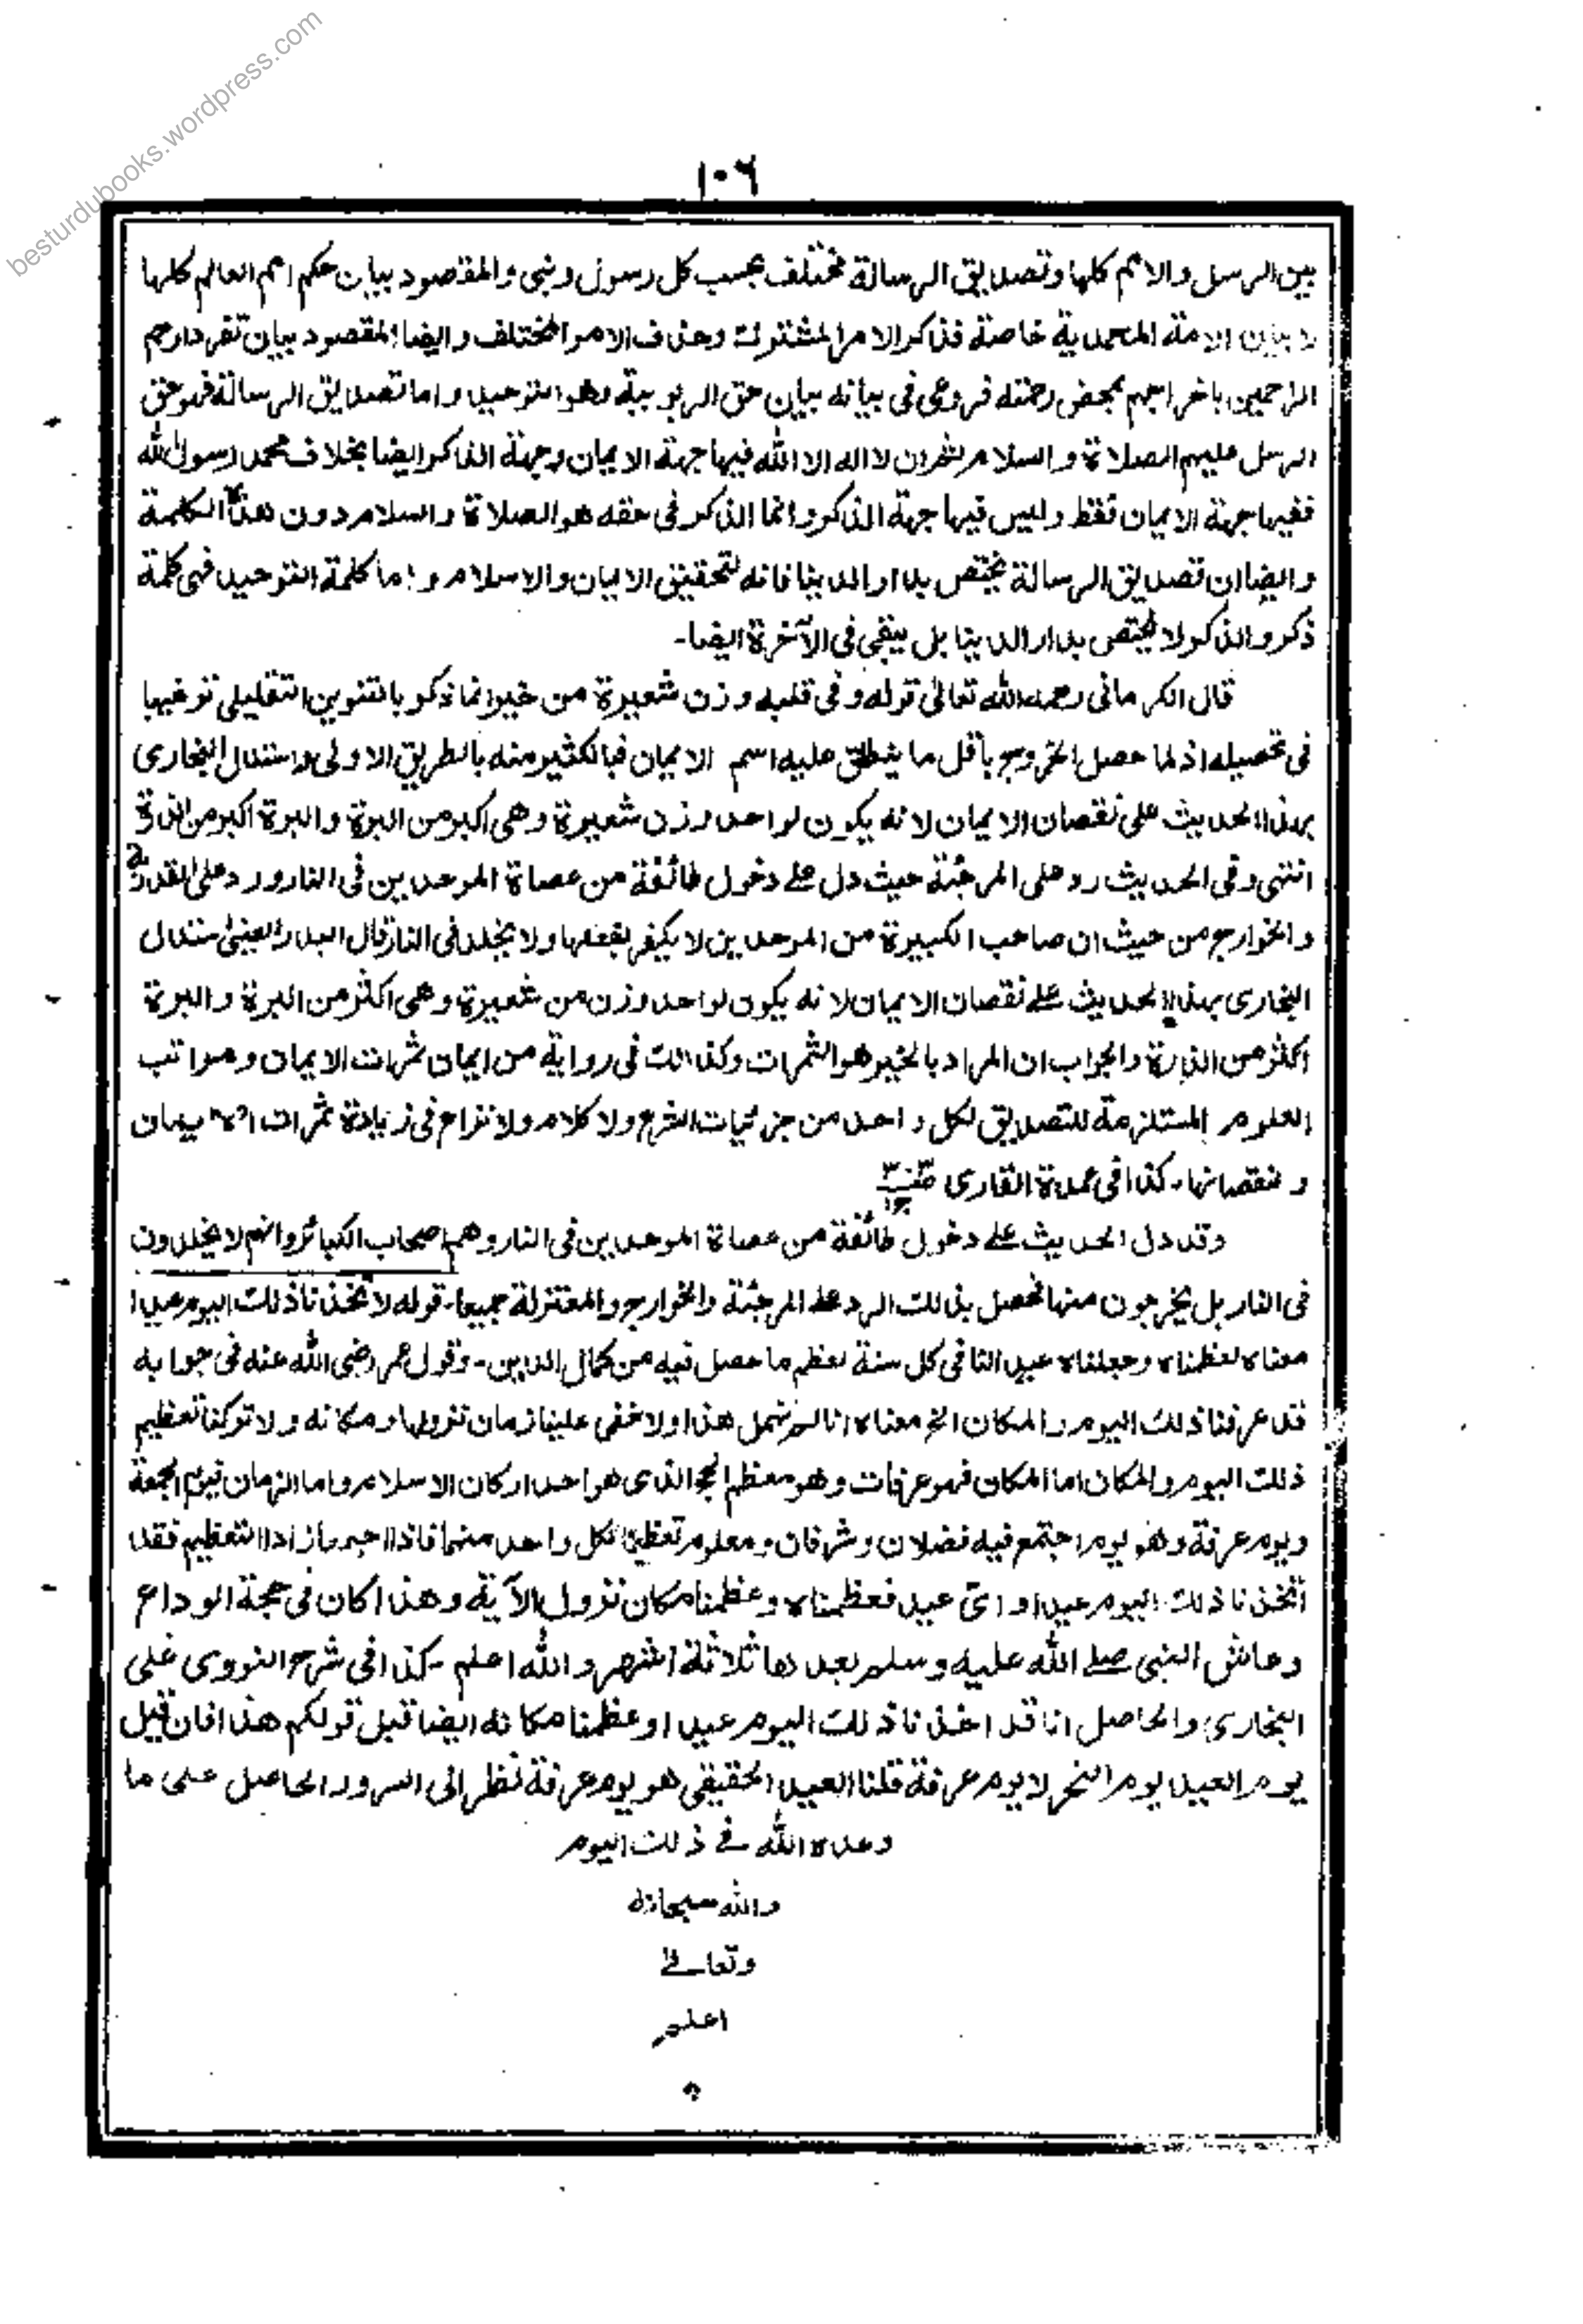 besturdubooks.wordpress.com
١٠٦
بين الرسل والامم كلها وتصديق الرسالة مختلف بحسب كل رسول ونبى والمقصود بيان حكم امم العالم كلها
لا بيان الامة المحمدية خاصة فذكر الامر المشترك وحذف الامر المختلف وايضا المقصود بيان تفرد ارحم
الراحمين باخراجهم بمحض رحمته فروعى فى بيانه بيان حق الربوبية وهو التوحيد واما تصديق الرسالة فهو حق
الرسل عليهم الصلاة والسلام ثم ان لا اله الا الله فيها جهة الايمان وجهة الذكر ايضا بخلاف محمد رسول الله
ففيها جهة الايمان فقط وليس فيها جهة الذكر وانما الذكر فى حقه هو الصلاة والسلام دون هذه الكلمة
وايضا ان تصديق الرسالة يختص بدار الدنيا فانه لتحقيق الايمان والاسلام واما كلمة التوحيد فهى كلمة
ذكر والذكر لا يختص بدار الدنيا بل يبقى فى الآخرة ايضا-
قال الكرمانى رحمه الله تعالى قوله وفى قلبه وزن شعيرة من خير انما ذكر بالتنوين التقليلى ترغيبا
فى تحصيله اذ لما حصل الخروج بأقل ما ينطلق عليه اسم الايمان فبالكثير منه بالطريق الاولى واستدل البخارى
بهذا الحديث على نقصان الايمان لانه يكون لواحد وزن شعيرة وهى اكبر من البرة والبرة اكبر من الذرة
انتهى وفى الحديث رد على المرجئة حيث دل على دخول طائفة من عصاة الموحدين فى النار ورد على القدرية
والخوارج من حيث ان صاحب الكبيرة من الموحدين لا يكفر بفعلها ولا يخلد فى النار قال البدر العينى استدل
البخارى بهذا الحديث على نقصان الايمان لانه يكون لواحد وزن من شعيرة وهى اكثر من البرة والبرة
اكثر من الذرة والجواب ان المراد بالخير هو الثمرات وكذلك فى رواية من ايمان ثمرات الايمان ومراتب
العلوم المستلزمة للتصديق لكل واحد من جزئيات الشرع ولا كلام ولا نزاع فى زيادة ثمرات الايمان
و نقصانها. كذا فى عمدة القارى
وقد دل الحديث على دخول طائفة من عصاة الموحدين فى النار وهم اصحاب الكبائر وانهم لا يخلدون
فى النار بل يخرجون منها فحصل بذلك الرد على المرجئة والخوارج والمعتزلة جميعا- قوله لاتخذنا ذلك اليوم عيدا
معناه لعظمناه وجعلناه عيدا لنا فى كل سنة لعظم ما حصل فيه من كمال الدين- وقول عمر رضى الله عنه فى جوابه
قد عرفنا ذلك اليوم والمكان الخ معناه انا لم نهمل هذا ولا خفى علينا زمان نزولها ومكانه ولا تركنا تعظيم
ذلك اليوم والمكان اما المكان فهو عرفات وهو معظم الحج الذى هو احد اركان الاسلام واما الزمان فيوم الجمعة
ويوم عرفة وهو يوم اجتمع فيه فضلان وشرفان ومعلوم تعظيمنا لكل واحد منهما فاذا اجتمعا زاد التعظيم فقد
اتخذنا ذلك اليوم عيدا واى عيد فعظمناه وعظمنا مكان نزول الآية وهذا كان فى حجة الوداع
وعاش النبى صلى الله عليه وسلم بعدها ثلاثة اشهر والله اعلم- كذا فى شرح النووى على
البخارى والحاصل انا قد اخذنا ذلك اليوم عيدا وعظمنا مكانه ايضا قبل قولكم هذا فان قيل
يوم العيد يوم النحر لا يوم عرفة قلنا العيد الحقيقى هو يوم عرفة نظرا الى السرور الحاصل على ما
وعده الله فى ذلك اليوم
والله سبحانه
وتعالى
اعلم